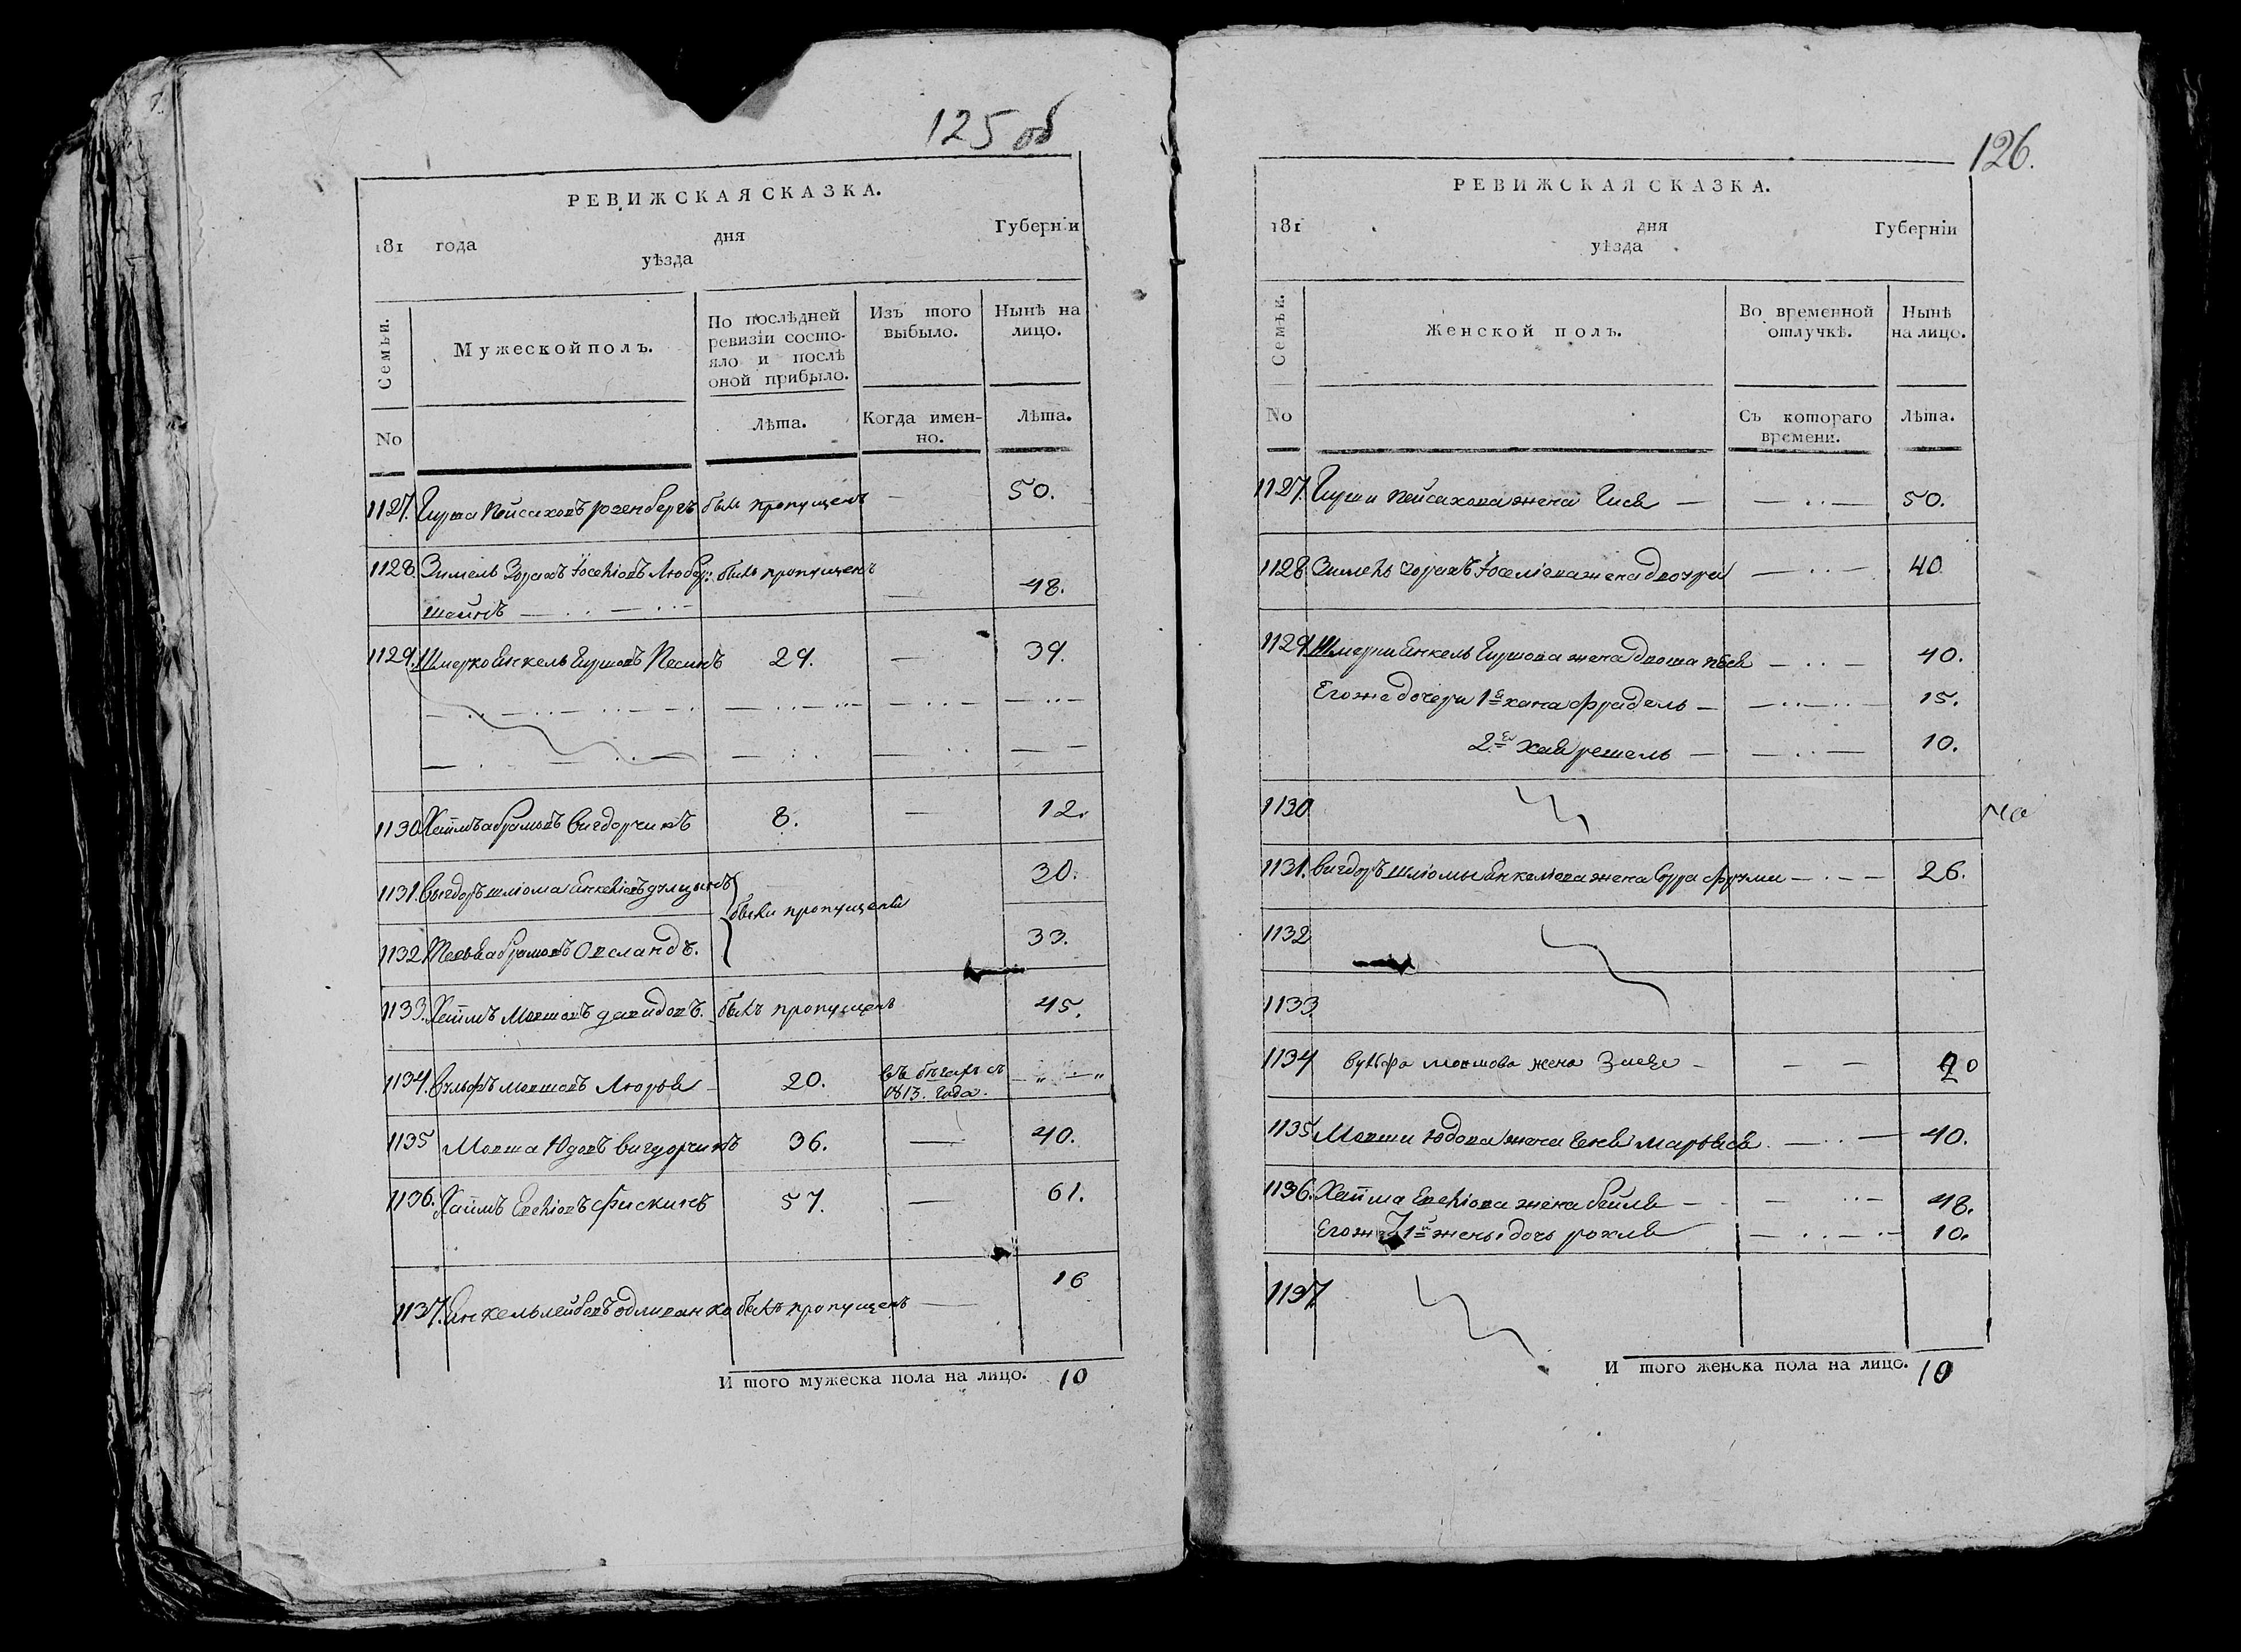 125 об
РЕВИЖСКАЯ СКАЗКА.
181 года дня Губерніи
уѣзда
Семьи.
Мужеской полъ.
По послѣдней ревизіи состо-
яло и послѣ
оной прибыло.
Изъ того
выбыло.
Нынѣ на
лицо.
No
Лѣта.
Когда имен-
но.
Лѣта.
1127. Гирша Пейсаховъ Розенбергъ былъ пропущенъ — 50.
1128. Зимель Іоселіовъ былъ пропущенъ
48.
1129. Шмерко Енкель Гиршовъ Песинъ 29. — 39.
1130 Хаимъ абрамовъ Вигдорчикъ 8. — 12.
1131. Вигдоръ шліома Енкеліовъ 30.
были пропущены
1132 абрамовъ 33.
1133. Хаимъ Мовшовъ давидовъ. былъ пропущенъ 45.
1134. Вульфъ мовшовъ Люрья 20. въ бѣгахъ съ
1813. года.
1135 Мовша Юдовъ Вигдорчикъ 36. — 40.
1136. Хаимъ Фискинъ 57. — 61.
1137. Енкель лейбовъ былъ пропущенъ — 16
И того мужеска пола на лицо. 10
126.
РЕВИЖСКАЯ СКАЗКА.
181 дня Губерніи
уѣзда
Семьи.
Женской полъ.
Во временной
отлучкѣ.
Нынѣ
на лицо.
No
Съ котораго
времени.
Лѣта.
1127. Гирши Пейсахова жена — 50.
1128 Іоселіова жена двойра 40
1129. Шмерки Енкель Гиршова жена двоша 40.
Его же дочери 1я хана фрадель — 15.
2я хая решель — 10.
1130
1131. Вигдоръ шліомы Енкеліова жена Сура фруми 26.
1132
1133
1134 Вульфа мовшова жена — 20
1135 Мовши Юдова жена 40.
1136. Хаима жена бейля 48.
Его же 1й жены дочь рохля 10.
1137
И того женска пола на лицо. 10